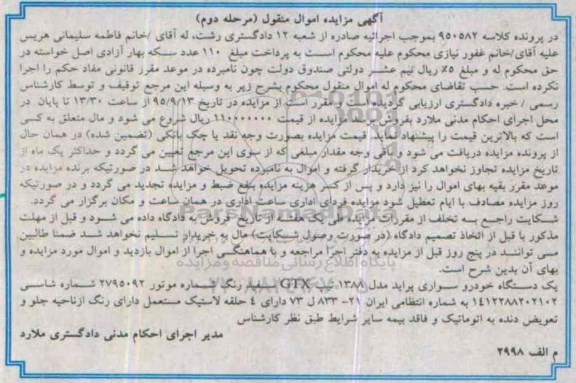 آگهی مزایده اموال منقول (مرحله دوم)
در پرونده کلاسه ۹۵۰۵۸۲ بموجب اجرائیه صادره از شعبه ۱۲ دادگستری رشت، له آقای /خانم فاطمه سلیمانی هریس
علیه آقای/خانم غفور نیازی محکوم علیه محکوم است به پرداخت مبلغ ۱۱۰ عدد سکه بهار آزادی اصل خواسته در
حق محکوم له و مبلغ ۵٪ ریال نیم عشر دولتی صندوق دولت چون نامبرده در موعد مقرر قانونی مفاد حکم را اجرا
نکرده است. حسب تقاضای محکوم له اموال منقول محکوم بشرح زیر به وسیله این مرجع توقیف و توسط کارشناس
رسمی / خبره دادگستری ارزیابی گردیده و مقرر است از مزایده در تاریخ ۹۵/۹/۱۳ از ساعت ۱۳/۳۰ تا پایان در
محل اجرای احکام مدنی ملارد بفروش مزایده از قیمت ۱۱۰۰۰۰۰۰۰ ریال شروع می شود و مال متعلق به کسی
است که بالاترین قیمت را پیشنهاد نماید. قیمت مزایده بصورت وجه نقد یا چک بانکی (تضمین شده) در همان حال
از پرونده مزایده دریافت می شود و باقی وجه مقدار مبلغی که از سوی این مرجع تعیین می گردد و حداکثر یک ماه از
تاریخ مزایده تجاوز نخواهد کرد از خریدار گرفته و اموال به نامبرده تحویل خواهد شد در صورتیکه برنده مزایده در
موعد مقرر بقیه بهای اموال را نیز دارد و پس از کسر هزینه مزایده بنفع ضبط و مزایده تجدید می گردد و در صورتیکه
روز مزایده مصادف با ایام تعطیل شود مزایده فردای اداری ساعت اداری در همان ساعت و مکان برگزار می گردد.
شکایت راجع به تخلف از مقررات مزایده ظرف یک هفته از تاریخ فروش به دادگاه داده می شود و قبل از مهلت
مذکور یا قبل از اتخاذ تصمیم دادگاه (در صورت وصول شکایت) مال به خریدار تسلیم نخواهد شد ضمنا طالبین
می توانند در پنج روز قبل از مزایده به دفتر اجرا مراجعه و با هماهنگی اجرا از اموال بازدید و اموال مورد مزایده و
بهای آن بدین شرح است.
یک دستگاه خودرو سواری پراید مدل ۱۳۸۸ تیپ GTX سفید رنگ شماره موتور ۲۷۹۵۰۹۲ شماره شاسی
۱۴۱۲۲۸۸۲۰۲۱۰۲ به شماره انتظامی ایران ۲۱- ۸۳۳ ل ۷۳ دارای ۴ حلقه لاستیک مستعمل دارای رنگ ازناحیه جلو و
تعویض دنده به اتوماتیک و فاقد بیمه سایر شرایط طبق نظر کارشناس
مدیر اجرای احکام مدنی دادگستری ملارد
م الف ۲۹۹۸